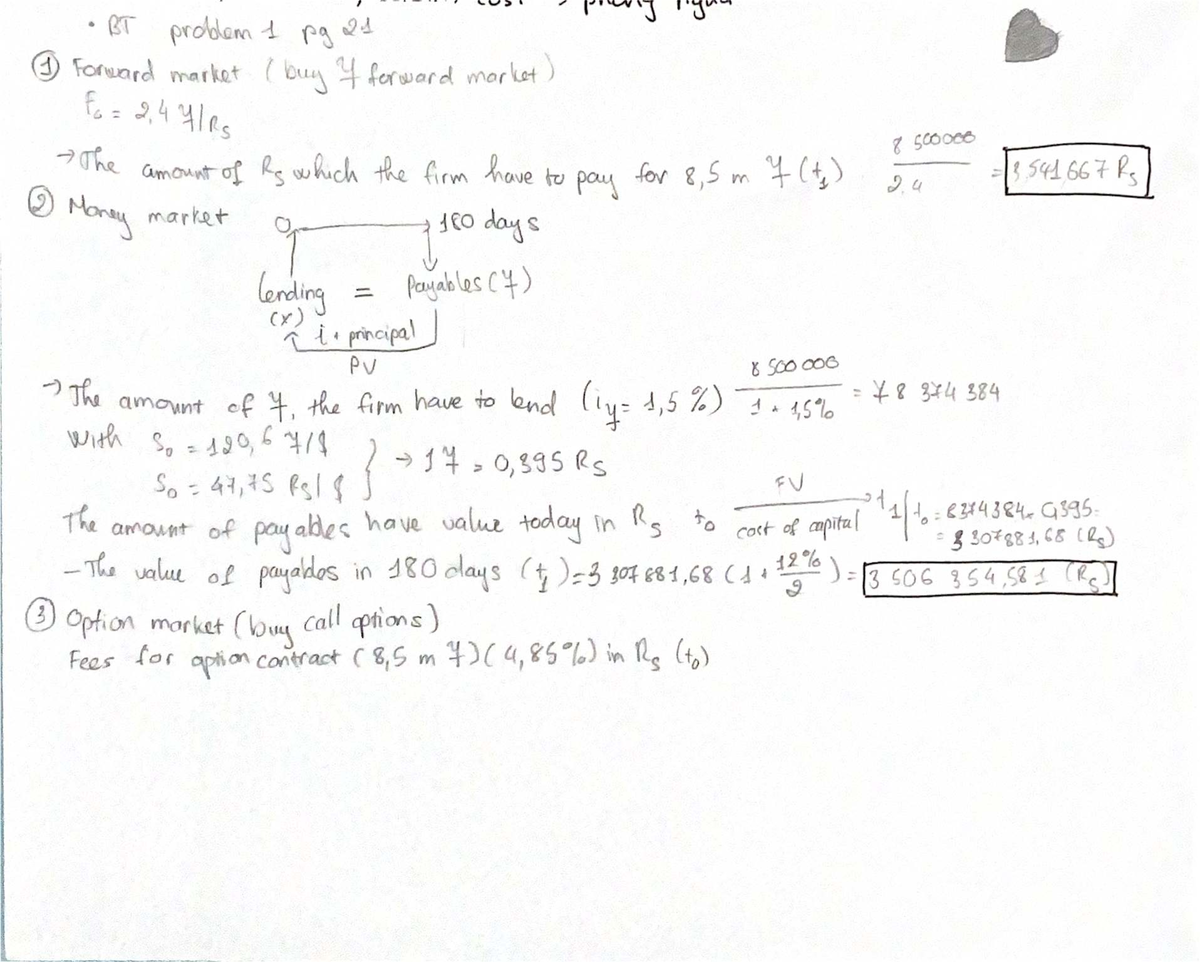 pricing
• BT problem 1 pg 21
① Forward market (buy ¥ forward market)
F₀ = 2,4 ¥/Rs
→ The amount of Rs which the firm have to pay for 8,5 m ¥ (t₁) 8 500000 / 2,4 = 3,541,667 Rs
② Money market
0 → 180 days
lending = Payables (¥)
(x) i + principal
PV
→ The amount of ¥, the firm have to lend (i¥ = 1,5%) 8 500 000 / 1 + 1,5% = ¥ 8 374 384
With S₀ = 120,6 ¥/$
S₀ = 47,75 Rs/$ } → 1 ¥ = 0,395 Rs
The amount of payables have value today in Rs t₀ FV / cost of capital → t₁ | t₀ = 8374384 × 0,395 =
= 3 307881,68 (Rs)
- The value of payables in 180 days (t₁) = 3 307 881,68 (1 + 12% / 2) = 3 506 354,581 (Rs)
③ Option market (buy call options)
Fees for option contract (8,5 m ¥)(4,85%) in Rs (t₀)